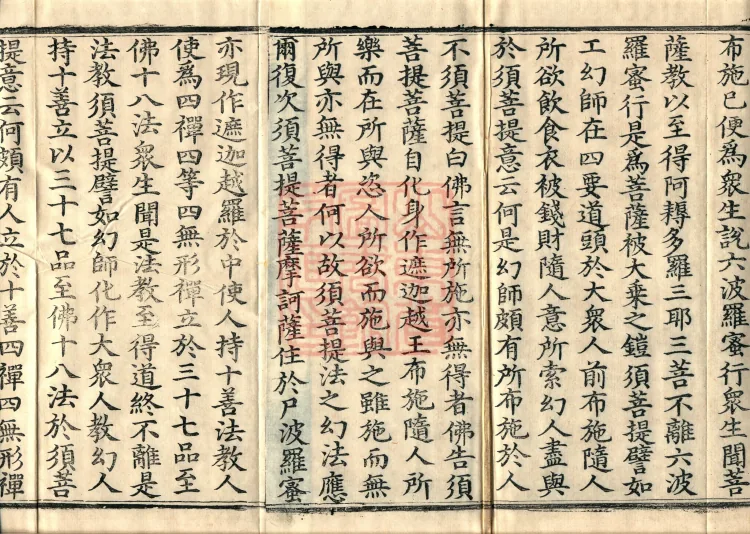 布施已便為眾生說六波羅蜜行眾生聞菩
薩教以至得阿耨多羅三耶三菩不離六波
羅蜜行是為菩薩被大乘之鎧須菩提譬如
工幻師在四要道頭於大眾人前布施隨人
所欲飲食衣被錢財隨人意所索幻人盡與
於須菩提意云何是幻師頗有所布施於人
不須菩提白佛言無所施亦無得者佛告須
菩提菩薩自化身作遮迦越王布施隨人所
樂而在所與恣人所欲而施與之雖施而無
所與亦無得者何以故須菩提法之幻法應
爾復次須菩提菩薩摩訶薩住於尸波羅蜜
亦現作遮迦越羅於中使人持十善法教人
使為四禪四等四無形禪立於三十七品至
佛十八法眾生聞是法教至得道終不離是
法教須菩提譬如幻師化作大眾人教幻人
持十善立以三十七品至佛十八法於須菩
提意云何頗有人立於十善四禪四無形禪